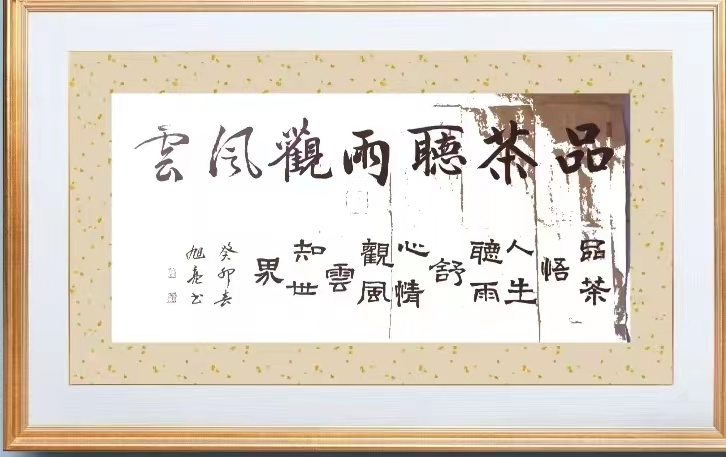 品茶聽雨觀風雲
品茶
悟
人生
聽雨
舒
心情
觀風
雲
知世
界
癸卯春
旭亮书